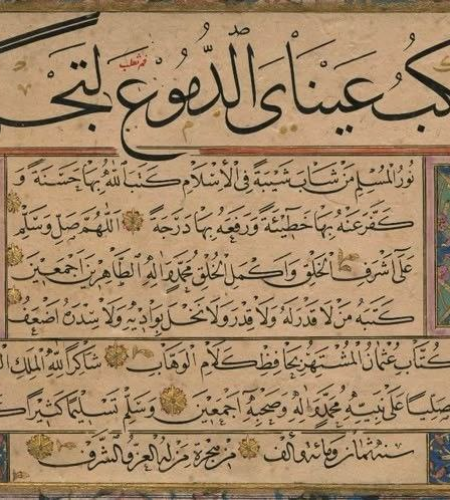 كبُ عَينايَ الدُّمُوعَ لتجم
نور المسلم من شاب شيبة في الاسلام كتب الله بها حسنة و
كفر عنه بها خطيئة ورفعه بها درجة اللهم صل وسلم
على اشرف الخلق واكمل الخلق محمد واله الطاهرين اجمعين
كتبه من لا قدر له ولا قدر ولا نخل بواديه ولا سدره اضعف
كتاب عثمان المشتهر بحافظ كلام الوهاب شاكرا لله الملك
صليا على نبيه محمد واله وصحبه اجمعين وسلم تسليما كثيرا
سنة ثمان ومائة والف من هجرة من له العز والشرف